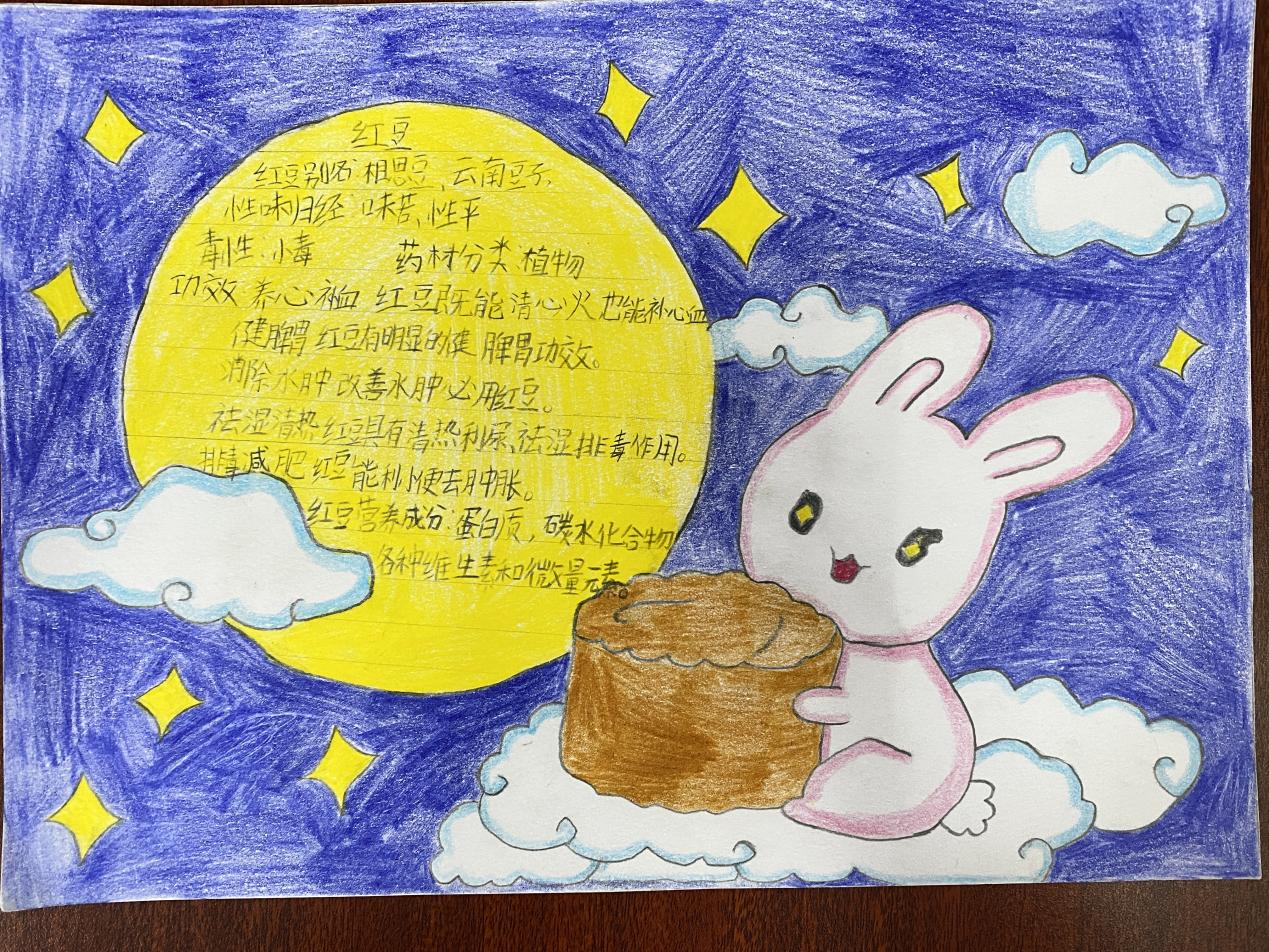 红豆
红豆别名 相思豆、云南豆子
性味归经 味苦、性平
毒性:小毒 药材分类:植物
功效 养心补血 红豆既能清心火 也能补心血
健脾胃 红豆有明显的健脾胃功效。
消除水肿 改善水肿必用红豆。
祛湿清热 红豆具有清热利尿、祛湿排毒作用。
排毒减肥 红豆能利小便去肿胀。
红豆营养成分:蛋白质,碳水化合物
各种维生素和微量元素。